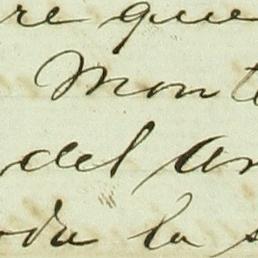 re que
Mont
del An
oda la s